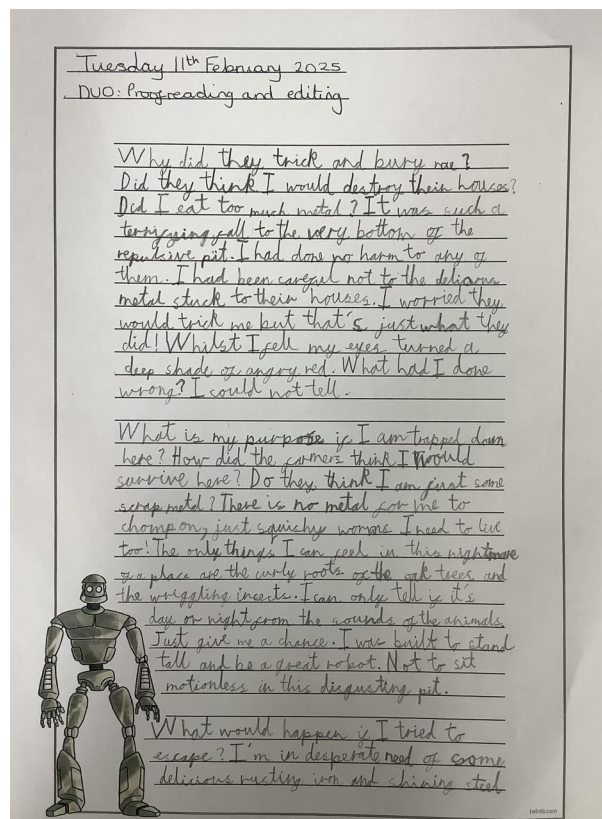 Tuesday 11th February 2025
DUO: Proofreading and editing
Why did they trick and bury me?
Did they think I would destroy their houses?
Did I eat too much metal? It was such a
terrifying fall to the very bottom of the
repulsive pit. I had done no harm to any of
them. I had been careful not to the
metal stuck to their houses. I worried they
would trick me but that's just what they
did! Whilst I fell my eyes turned a
deep shade of angry red. What had I done
wrong? I could not tell.
What is my purpose if I am trapped down
here? How did the farmers think I would
survive here? Do they think I am just some
scrap metal? There is no metal for me to
chomp on, just squishy worms I need to live
too! The only things I can feel in this nightmare
of a place are the curly roots of the oak trees, and
the wriggling insects. I can only tell if it's
day or night from the sounds of the animals.
Just give me a chance. I was built to stand
tall and be a great robot. Not to sit
motionless in this disgusting pit.
What would happen if I tried to
escape? I'm in desperate need of some
delicious rusting iron and shining steel
twinkl.com